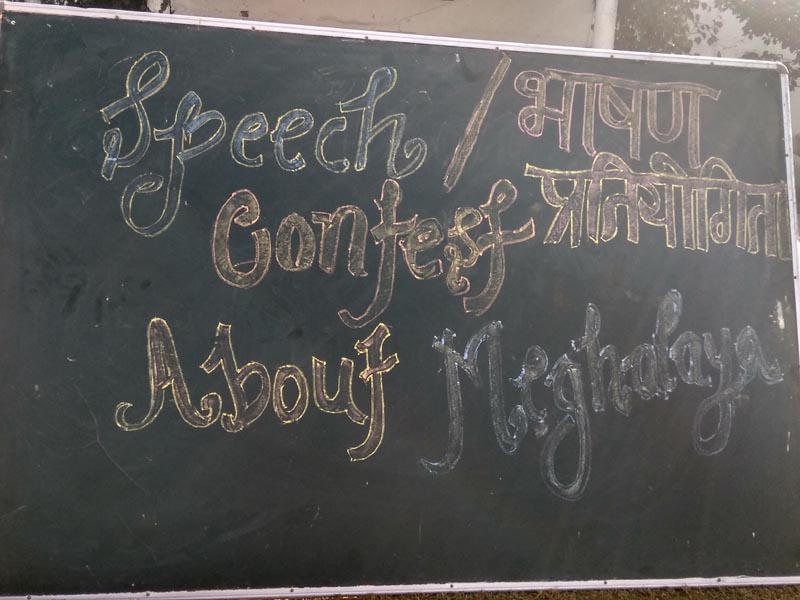 Speech / भाषण
Contest प्रतियोगिता
About Meghalaya